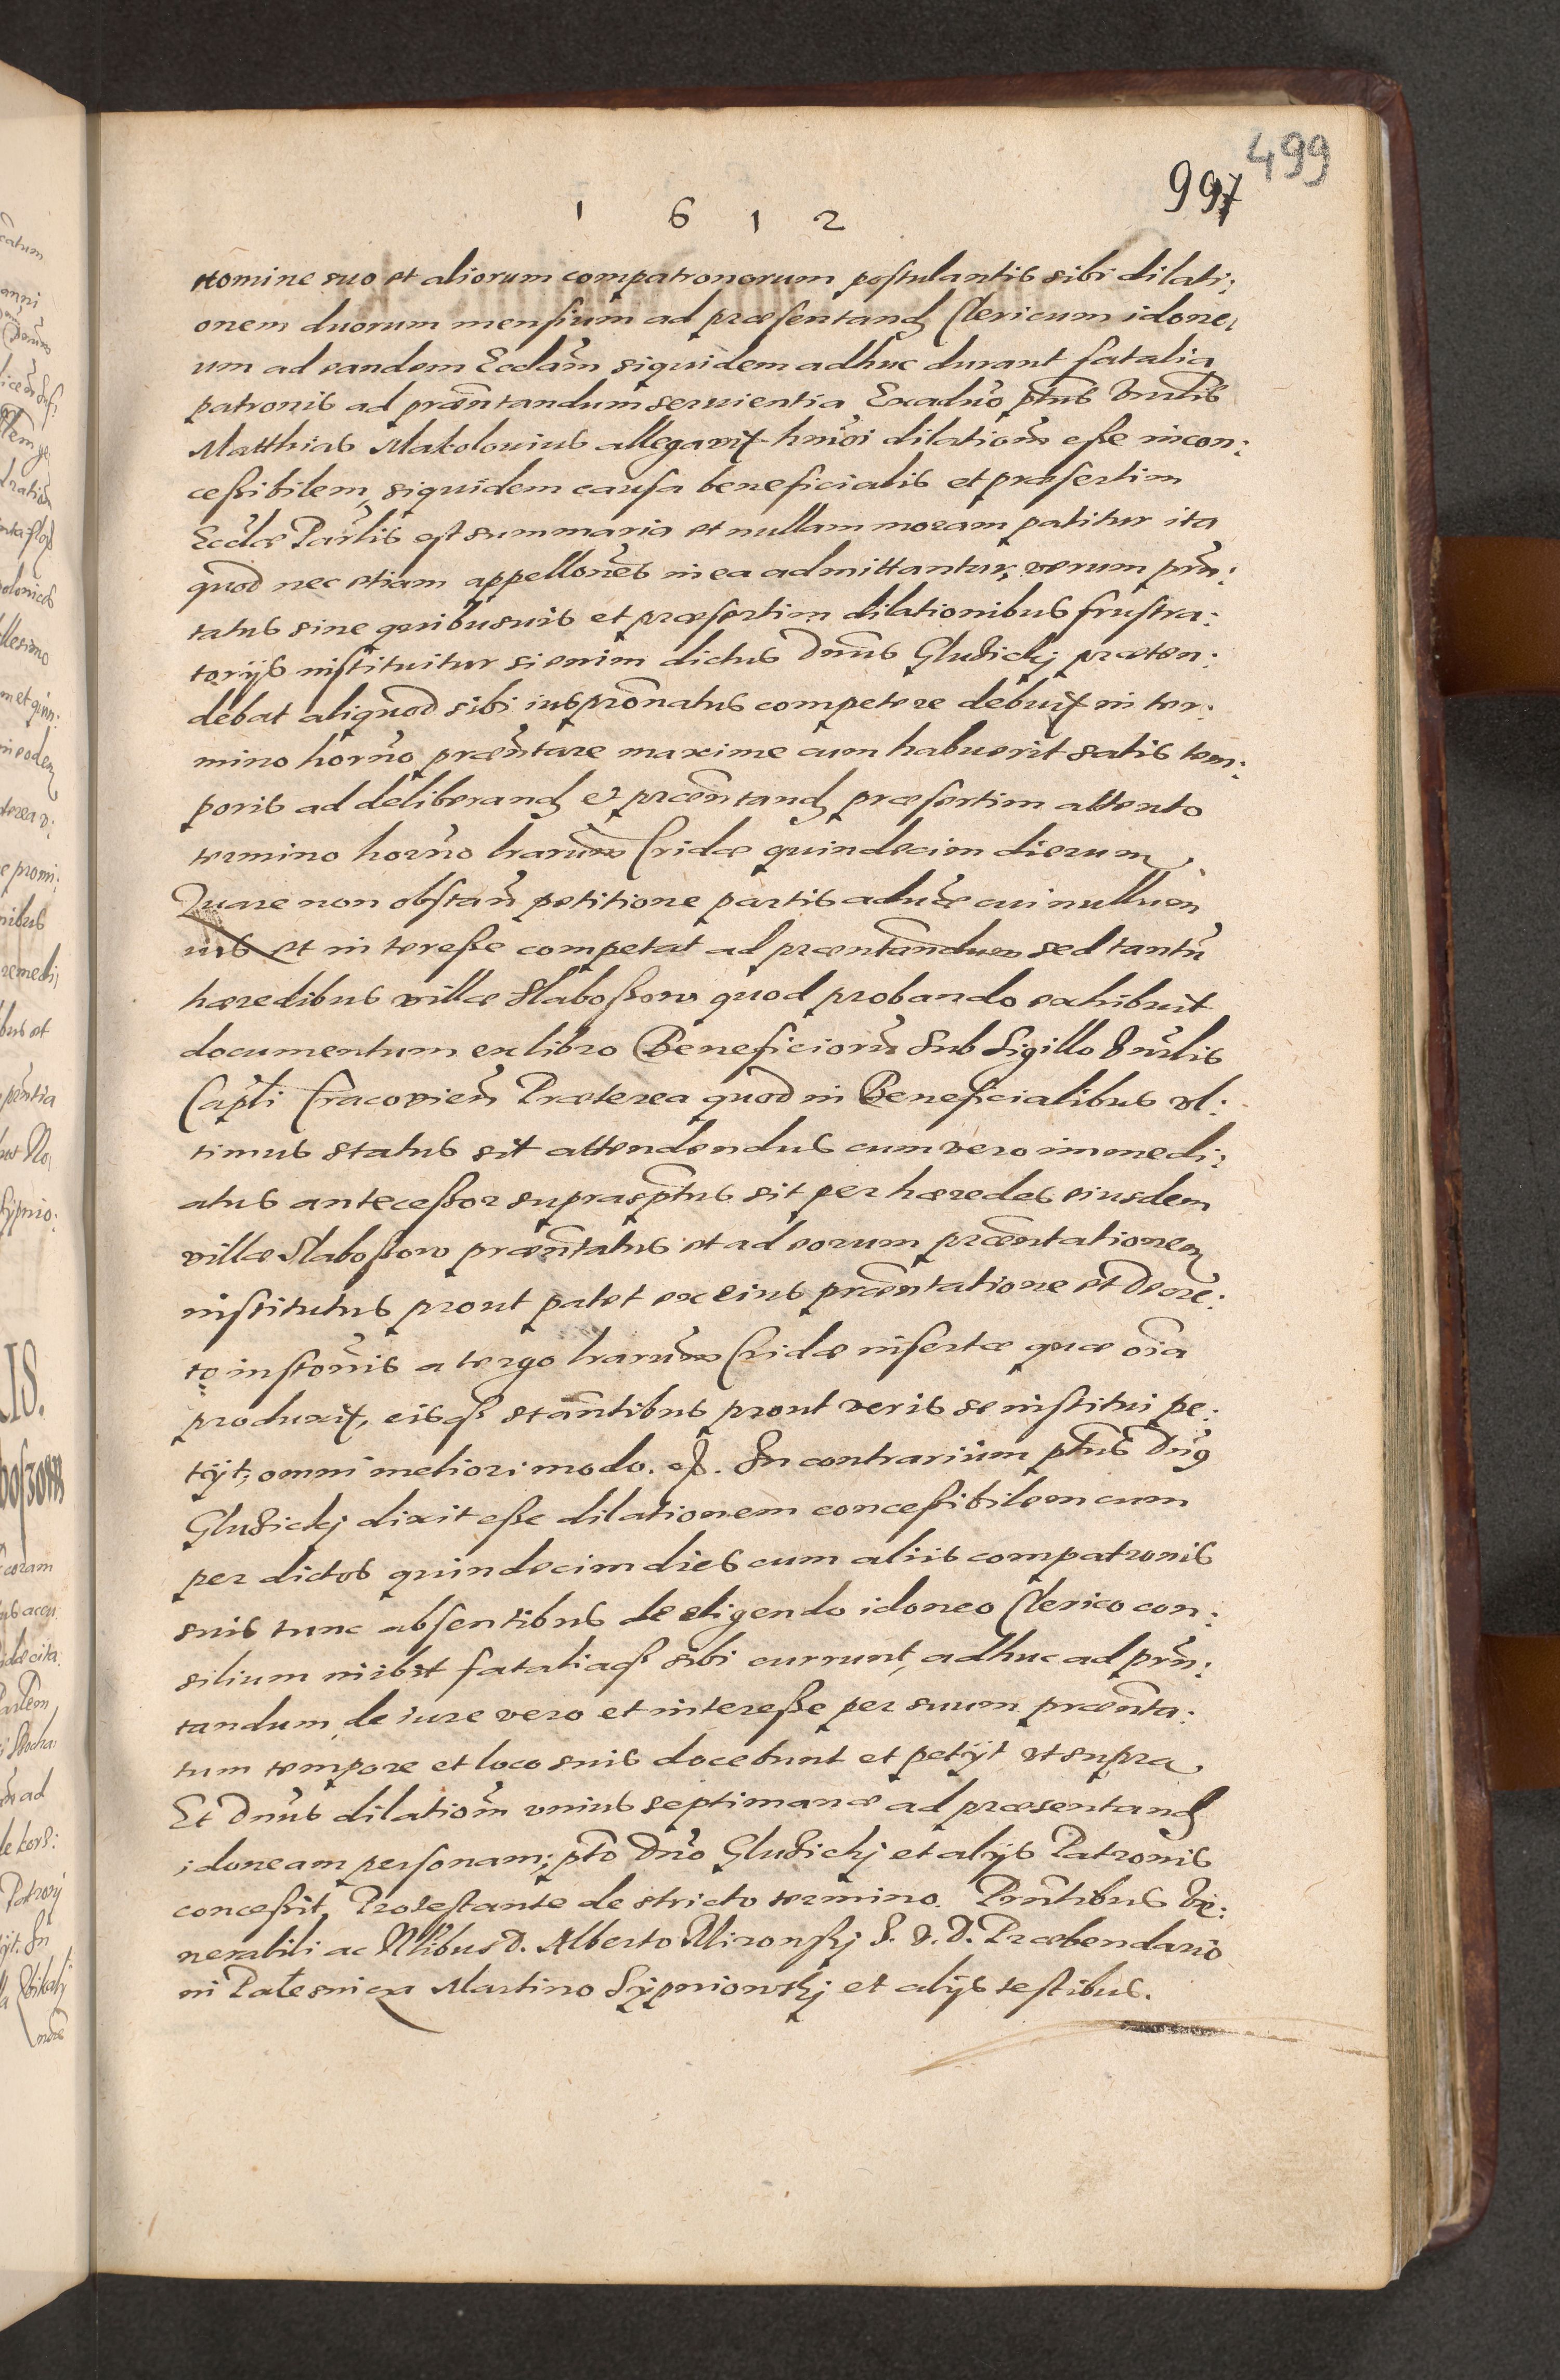 499
997
1 6 1 2
nomine suo et aliorum compatronorum postulantis sibi dilati:
onem duorum mensium ad præsentand Clericum idone,
um ad eandem Eccl̃am siquidem adhuc durant fatalia
patronis ad præñtandum servientia Exaduõ ptus Vrñlis
Matthias Makolovius allegavit hm̃oi dilationẽ esse incon:
cessibilem, siquidem causa beneficialis et præsertim
Eccl̃æ Par̃lis est summaria et nullam moram patitur ita
quod nec etiam appellon̄es in ea admittantur, verum prñ:
tatus sine quibusvis et præsertim dilationibus frustra:
torijs instituitur si enim dictus Dnus Gluzickj præten:
debat aliquod sibi ius prõnatus competere debuit in ter:
mino horño præñtare maxime cum habuerit satis tem:
poris ad deliberand et præñtand præsertim attento
termino horño harum Cridæ quindecim dierum
Quare non obstañ petitione partis aduræ cui nullum
ius et interesse competat ad præntandum sed tantũ
hæredibus villæ Slabossow quod probando exhibuit
documentum ex libro Beneficiorũ sub sigillo Vnr̃lis
Capt̃li Cracovieñ Præterea quod in Beneficialibus vl:
timus status sit attendendus cum vero immedi:
atus antecessor suprasptus sit per hæredes eiusdem
villæ Slabossow præñtatus et ad eorum præñtationem
institutus prout patet ex eius præñtatione et Decre:
to instõnis a tergo harum Cridæ insertæ quæ oĩa
produxit, eisq stantibus prout veris se institui pe:
tijt, omni meliori modo. In contrarium ptus Dñs
Gluzickj dixit esse dilationem concessibilem cum
per dictos quindecim dies cum aliis compatronis
suis tunc absentibus de eligendo idoneo Clerico con:
silium inibit fataliaq sibi currunt, adhuc ad prñ:
tandum, de iure vero et interesse per suum præñta:
tum tempore et loco suis docebunt et petijt ut supra
Et Dnus dilationẽ vnius septimanæ ad præsentand
idoneam personam, pto Dño Gluzickj et alijs Patronis
concessit, Protestante de stricto termino. Prñtibus Ve:
nerabili ac Nlibus D. Alberto Mironskj Præbendario
in Palesnica Martino Sypniowskj et alijs testibus.